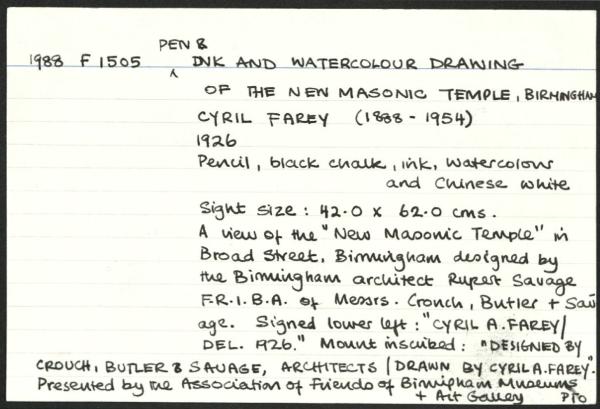 PEN &
1988 F 1505 ^ INK AND WATERCOLOUR DRAWING
OF THE NEW MASONIC TEMPLE, BIRMINGHAM
CYRIL FAREY (1888 - 1954)
1926
Pencil, black chalk, ink, watercolour
and Chinese white
Sight size: 42.0 x 62.0 cms.
A view of the "New Masonic Temple" in
Broad Street, Birmingham designed by
the Birmingham architect Rupert Savage
F.R.I.B.A. of Messrs. Crouch, Butler + Sav
age. Signed lower left: "CYRIL A. FAREY/
DEL. 1926." Mount inscribed: "DESIGNED BY
CROUCH, BUTLER & SAVAGE, ARCHITECTS / DRAWN BY CYRIL A. FAREY".
Presented by the Association of Friends of Birmingham Museums
+ Art Gallery PTO